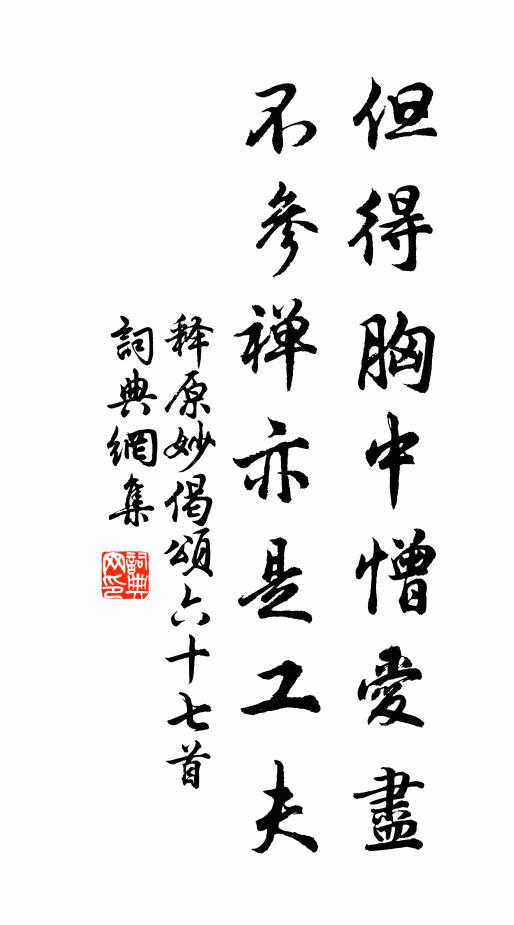 但得胸中憎愛盡
不參禅亦是工夫
释原妙偈頌六十七首
詞典網集
詞典
网印